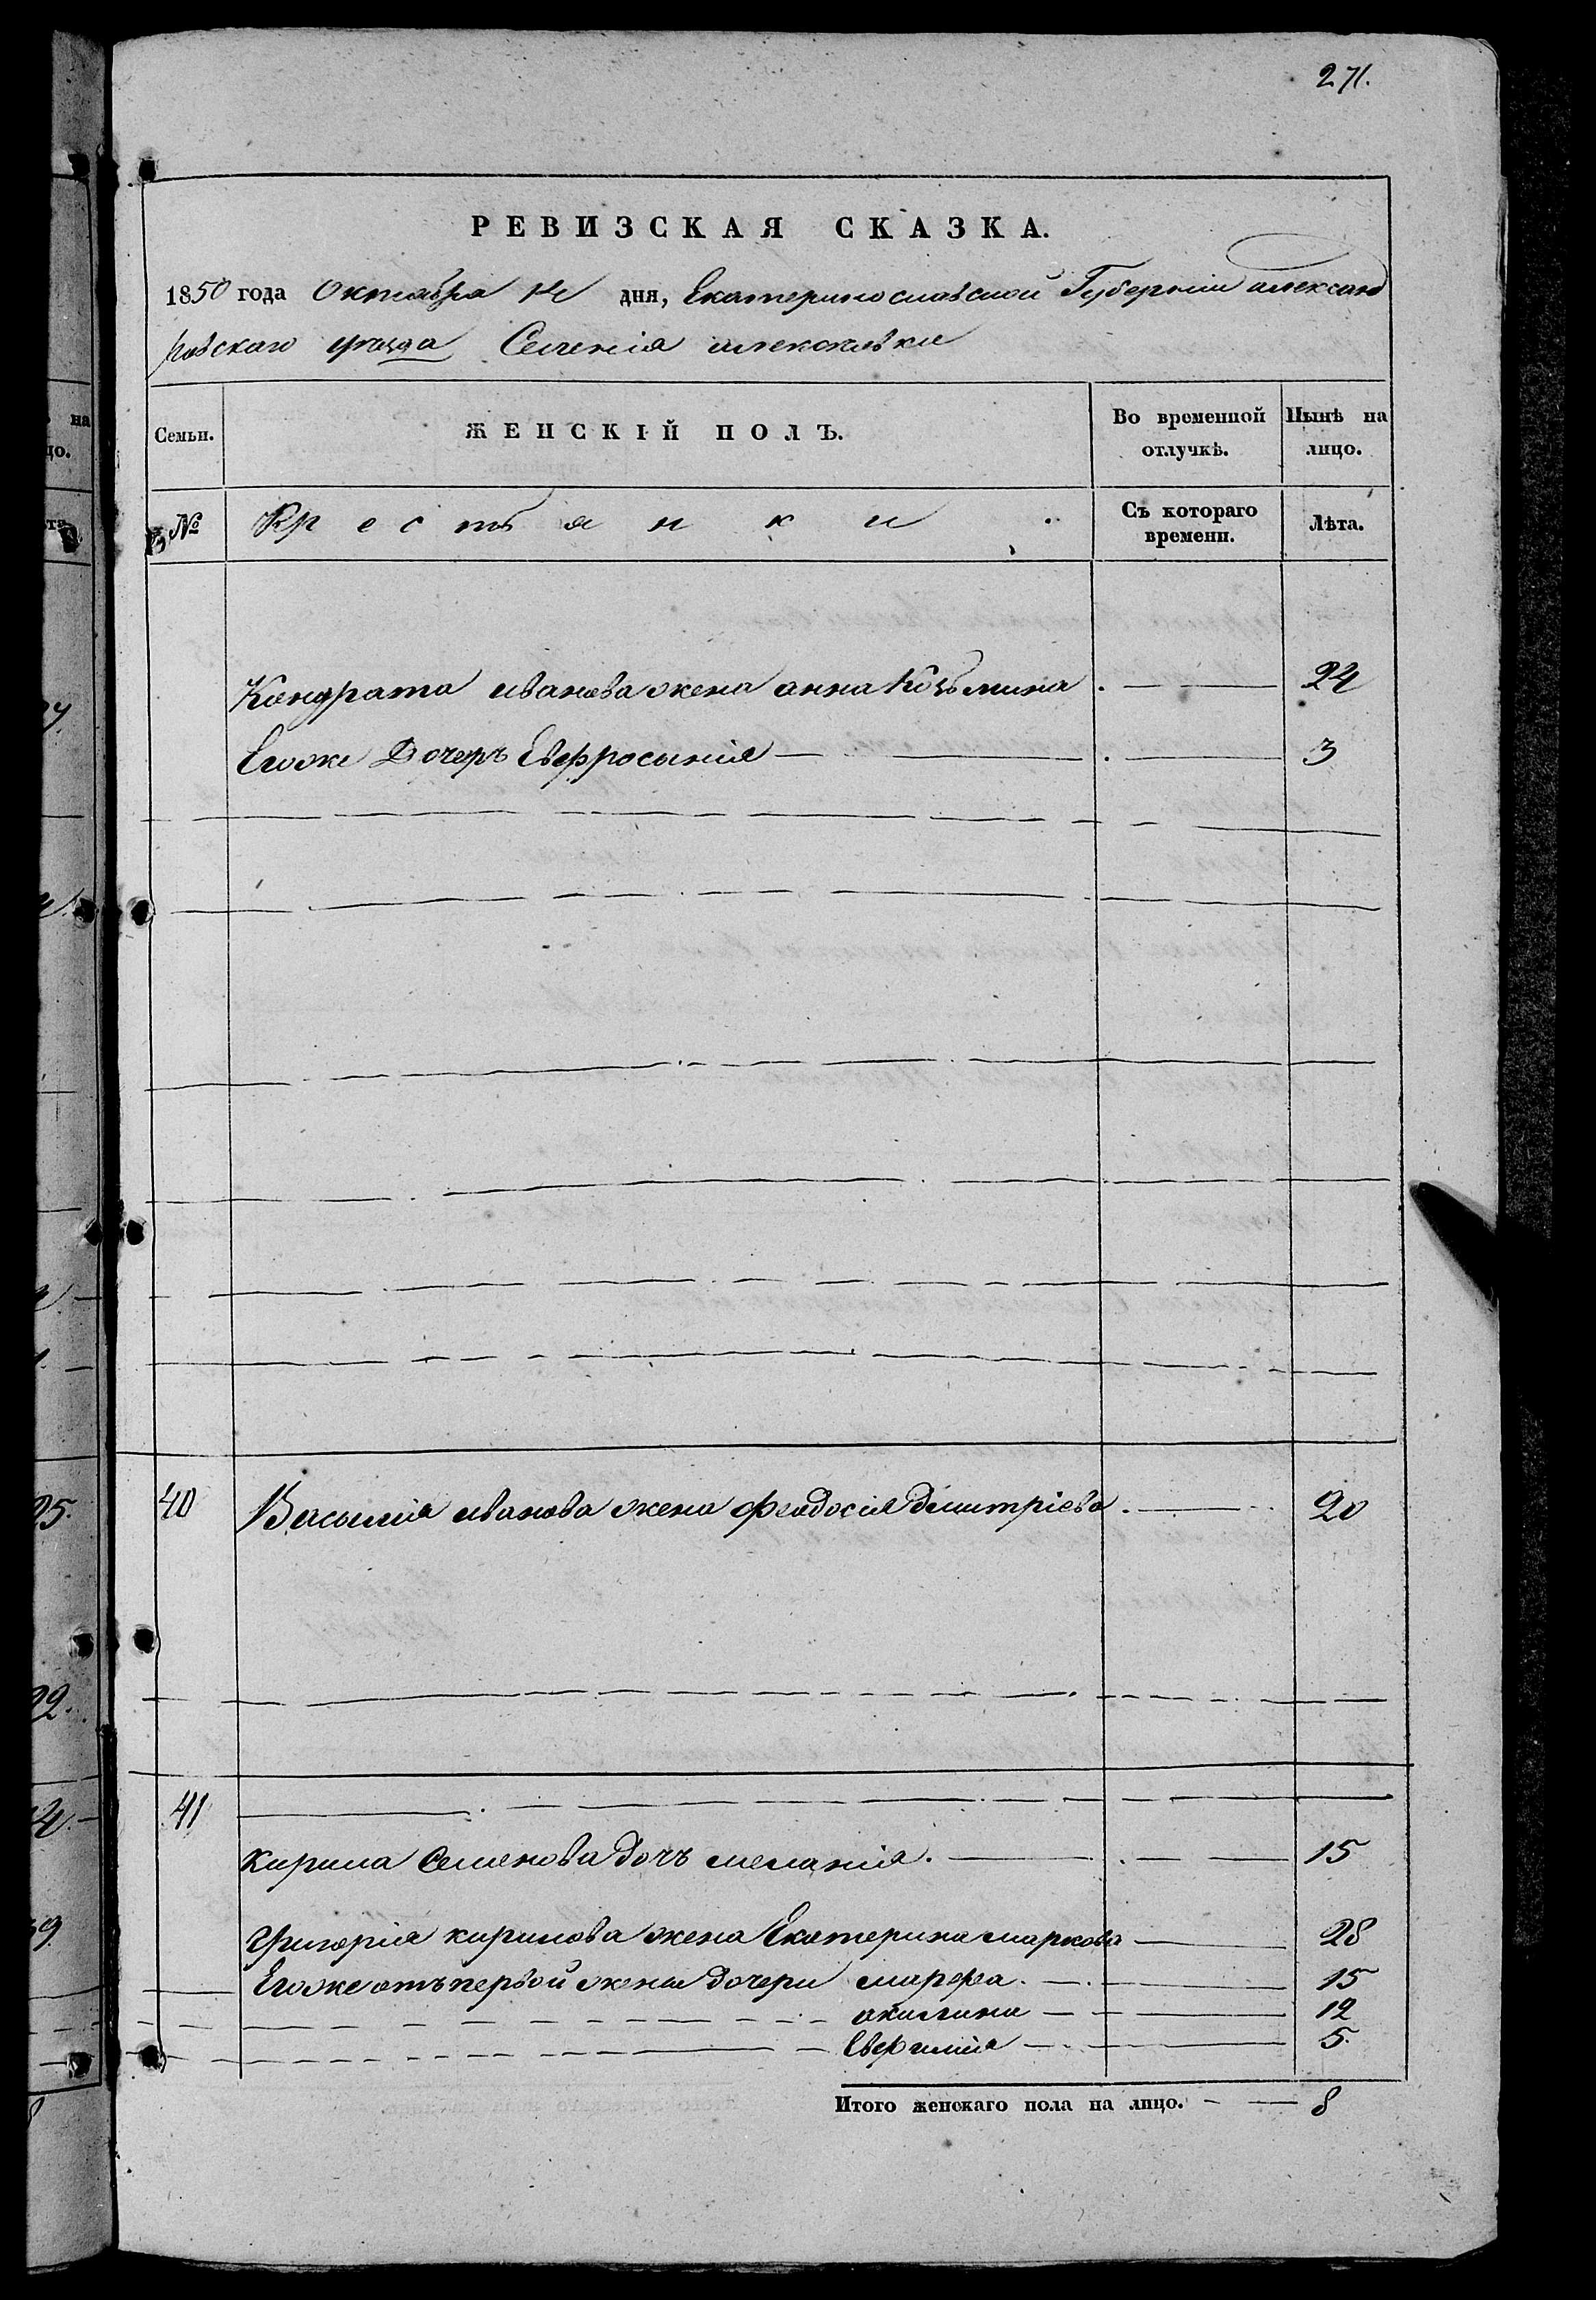 271.
РЕВИЗСКАЯ СКАЗКА.
1850 года Октября дня, Екатеринославской Губерніи александ
ровскаго уезда Селенія алексеевки
Семьи. ЖЕНСКІЙ ПОЛЪ. Во временной отлучкѣ. Нынѣ на лицо.
№ Крестьянки Съ котораго времени. Лѣта.
Кондрата иванова жена анна Козьмина 24
Егоже Дочерь Евфросынія 3
40 Василія иванова жена феодосія дмитріева 20
41
Кирила Семенова дочъ меланія. 15
Григорія кирилова жена Екатерина маркова 28
Егоже отъ первой жены дочери марфа. 15
акилина 12
Евфимія 5.
Итого женскаго пола на лицо. 8